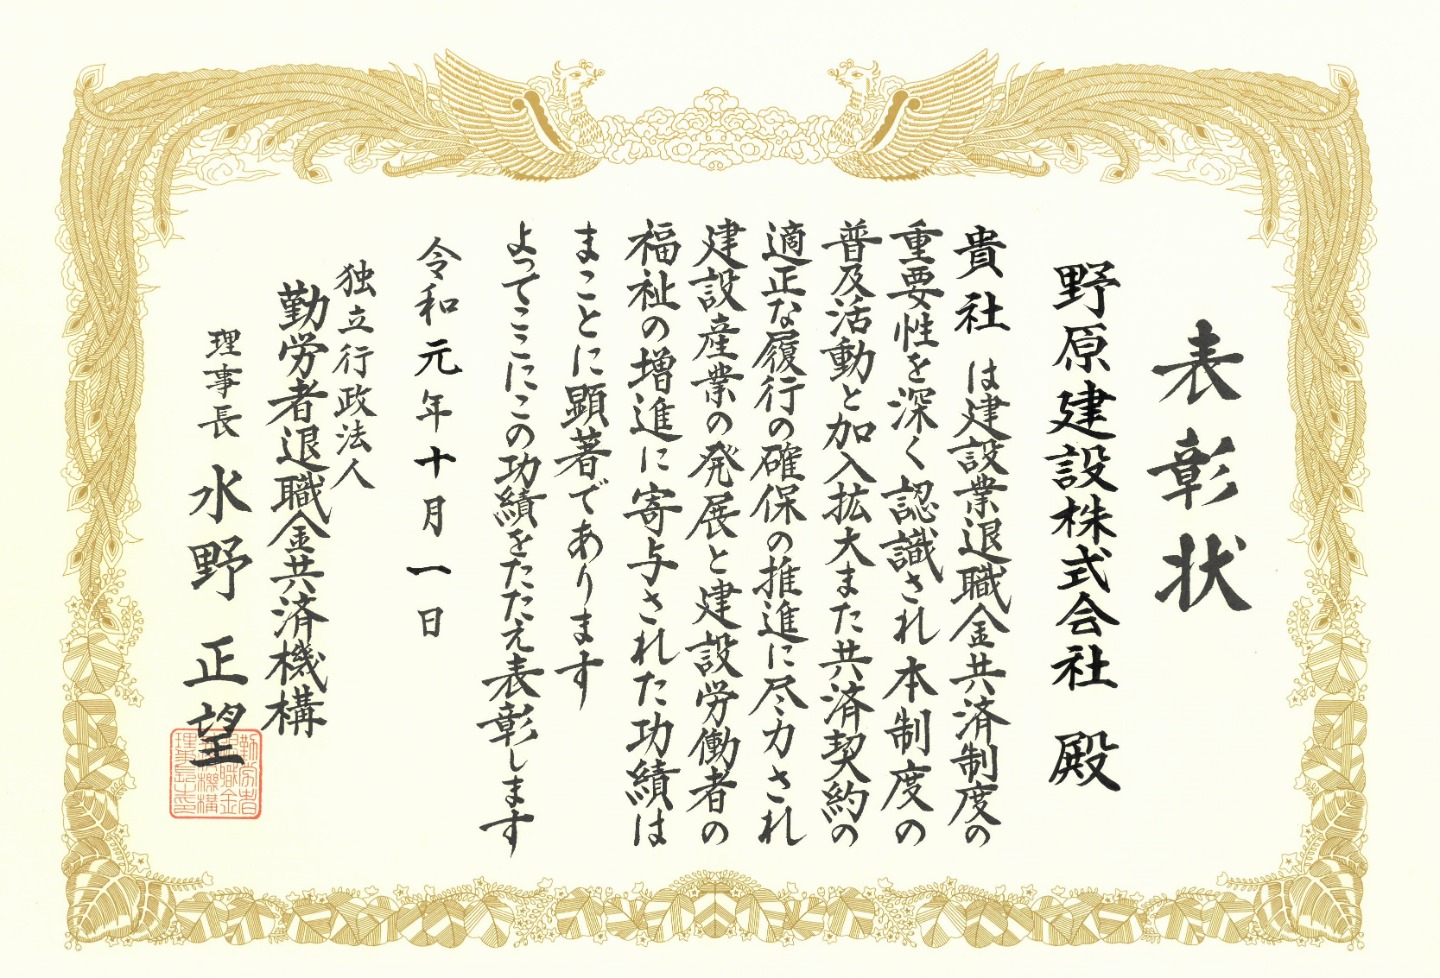 表彰状
野原建設株式会社 殿
貴社は建設業退職金共済制度の
重要性を深く認識され本制度の
普及活動と加入拡大また共済契約の
適正な履行の確保の推進に尽力され
建設産業の発展と建設労働者の
福祉の増進に寄与された功績は
まことに顕著であります
よってここにこの功績をたたえ表彰します
令和元年十月一日
独立行政法人
勤労者退職金共済機構
理事長 水野正望